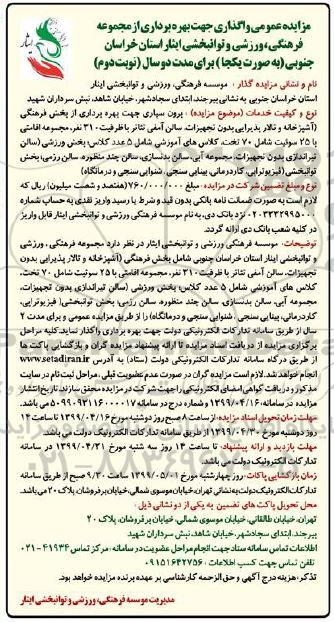 مزایده عمومی واگذاری جهت بهره برداری از مجموعه
فرهنگی، ورزشی و توانبخشی ایثار استان خراسان
جنوبی (به صورت یکجا) برای مدت دو سال (نوبت دوم)
ایثار
نام و نشانی مزایده گذار : موسسه فرهنگی، ورزشی و توانبخشی ایثار
استان خراسان جنوبی به نشانی بیرجند، ابتدای سجادشهر، خیابان شاهد، نبش سرداران شهید
نوع و کیفیت خدمات (موضوع مزایده) : برون سپاری جهت بهره برداری از بخش فرهنگی
(آشپزخانه و تالار پذیرایی بدون تجهیزات، سالن آمفی تئاتر با ظرفیت ۳۱۰ نفر، مجموعه اقامتی
با ۲۵ سوئیت شامل ۷۰ تخت، کلاس های آموزشی شامل ۵ عدد کلاس؛ بخش ورزشی (سالن
تیراندازی بدون تجهیزات، مجموعه آبی، سالن بدنسازی، سالن چند منظوره، سالن رزمی؛ بخش
توانبخشی (فیزیوتراپی، کاردرمانی، بینایی سنجی، شنوایی سنجی و درمانگاه)
نوع و مبلغ تضمین شرکت در مزایده : مبلغ ۷۶۰/۰۰۰/۰۰۰ (هفتصد و شصت میلیون) ریال که
لازم است به صورت ضمانت نامه بانکی بدون قید و شرط یا رسید واریز نقدی به حساب شماره
نزد بانک دی، به نام موسسه فرهنگی ورزشی و توانبخشی ایثار قابل واریز
در کلیه شعب بانک دی ارائه گردد.
توضیحات: موسسه فرهنگی ورزشی و توانبخشی ایثار در نظر دارد مجموعه فرهنگی، ورزشی
و توانبخشی ایثار استان خراسان جنوبی شامل بخش فرهنگی (آشپزخانه و تالار پذیرایی بدون
تجهیزات، سالن آمفی تئاتر با ظرفیت ۳۱۰ نفر، مجموعه اقامتی با ۲۵ سوئیت شامل ۷۰ تخت،
کلاس های آموزشی شامل ۵ عدد کلاس، بخش ورزشی (سالن تیراندازی بدون تجهیزات،
مجموعه آبی، سالن بدنسازی، سالن چند منظوره، سالن رزمی؛ بخش توانبخشی (فیزیوتراپی،
کاردرمانی، بینایی سنجی، شنوایی سنجی و درمانگاه) را از طریق مزایده عمومی و برای مدت ۲
سال از طریق سامانه تدارکات الکترونیکی دولت جهت بهره برداری واگذار نماید. کلیه مراحل
برگزاری مزایده از دریافت اسناد مزایده تا ارائه پیشنهاد مزایده گران و بازگشایی پاکت ها
از طریق درگاه سامانه تدارکات الکترونیکی دولت (ستاد) به آدرس www.setadiran.ir
انجام خواهد شد. لازم است مزایده گران در صورت عدم عضویت قبلی، مراحل ثبت نام در سایت
مذکور و دریافت گواهی امضای الکترونیکی را جهت شرکت در مزایده محقق سازند. تاریخ انتشار
مزایده در سامانه، ۱۳۹۹/۰۴/۱۶ و شماره درج در سامانه می باشد.
مهلت زمان تحویل اسناد مزایده : از ساعت ۸ صبح روز دوشنبه مورخ ۱۳۹۹/۰۴/۱۶ تا ساعت ۱۴
روز دوشنبه مورخ ۱۳۹۹/۰۴/۳۰ از طریق سامانه تدارکات الکترونیک دولت می باشد.
مهلت بازدید و ارائه پیشنهاد: تا ساعت ۱۴ روز سه شنبه مورخ ۱۳۹۹/۰۴/۳۱ در سامانه
تدارکات الکترونیک دولت می باشد.
زمان بازگشایی پاکات: روز چهارشنبه مورخ ۱۳۹۹/۰۵/۰۱ ساعت ۹/۳۰ صبح از طریق سامانه
تدارکات الکترونیک دولت به نشانی تهران، خیابان موسوی شمالی، خیابان برفروشان، پلاک ۲۰ می باشد.
محل تحویل پاکت های تضمین به یکی از دو نشانی ذیل :
تهران، خیابان طالقانی، خیابان موسوی شمالی، خیابان برفروشان، پلاک ۲۰
بیرجند، ابتدای سجادشهر، خیابان شاهد، نبش سرداران شهید
اطلاعات تماس سامانه ستاد جهت انجام مراحل عضویت در سامانه : مرکز تماس ۴۱۹۳۴-۰۲۱
تلفن تماس جهت کسب اطلاعات : ۰۹۱۵۱۶۴۲۷۵۶
تذکر: هزینه درج آگهی و حق الزحمه کارشناسی بر عهده برنده مزایده خواهد بود.
مدیریت موسسه فرهنگی، ورزشی و توانبخشی ایثار